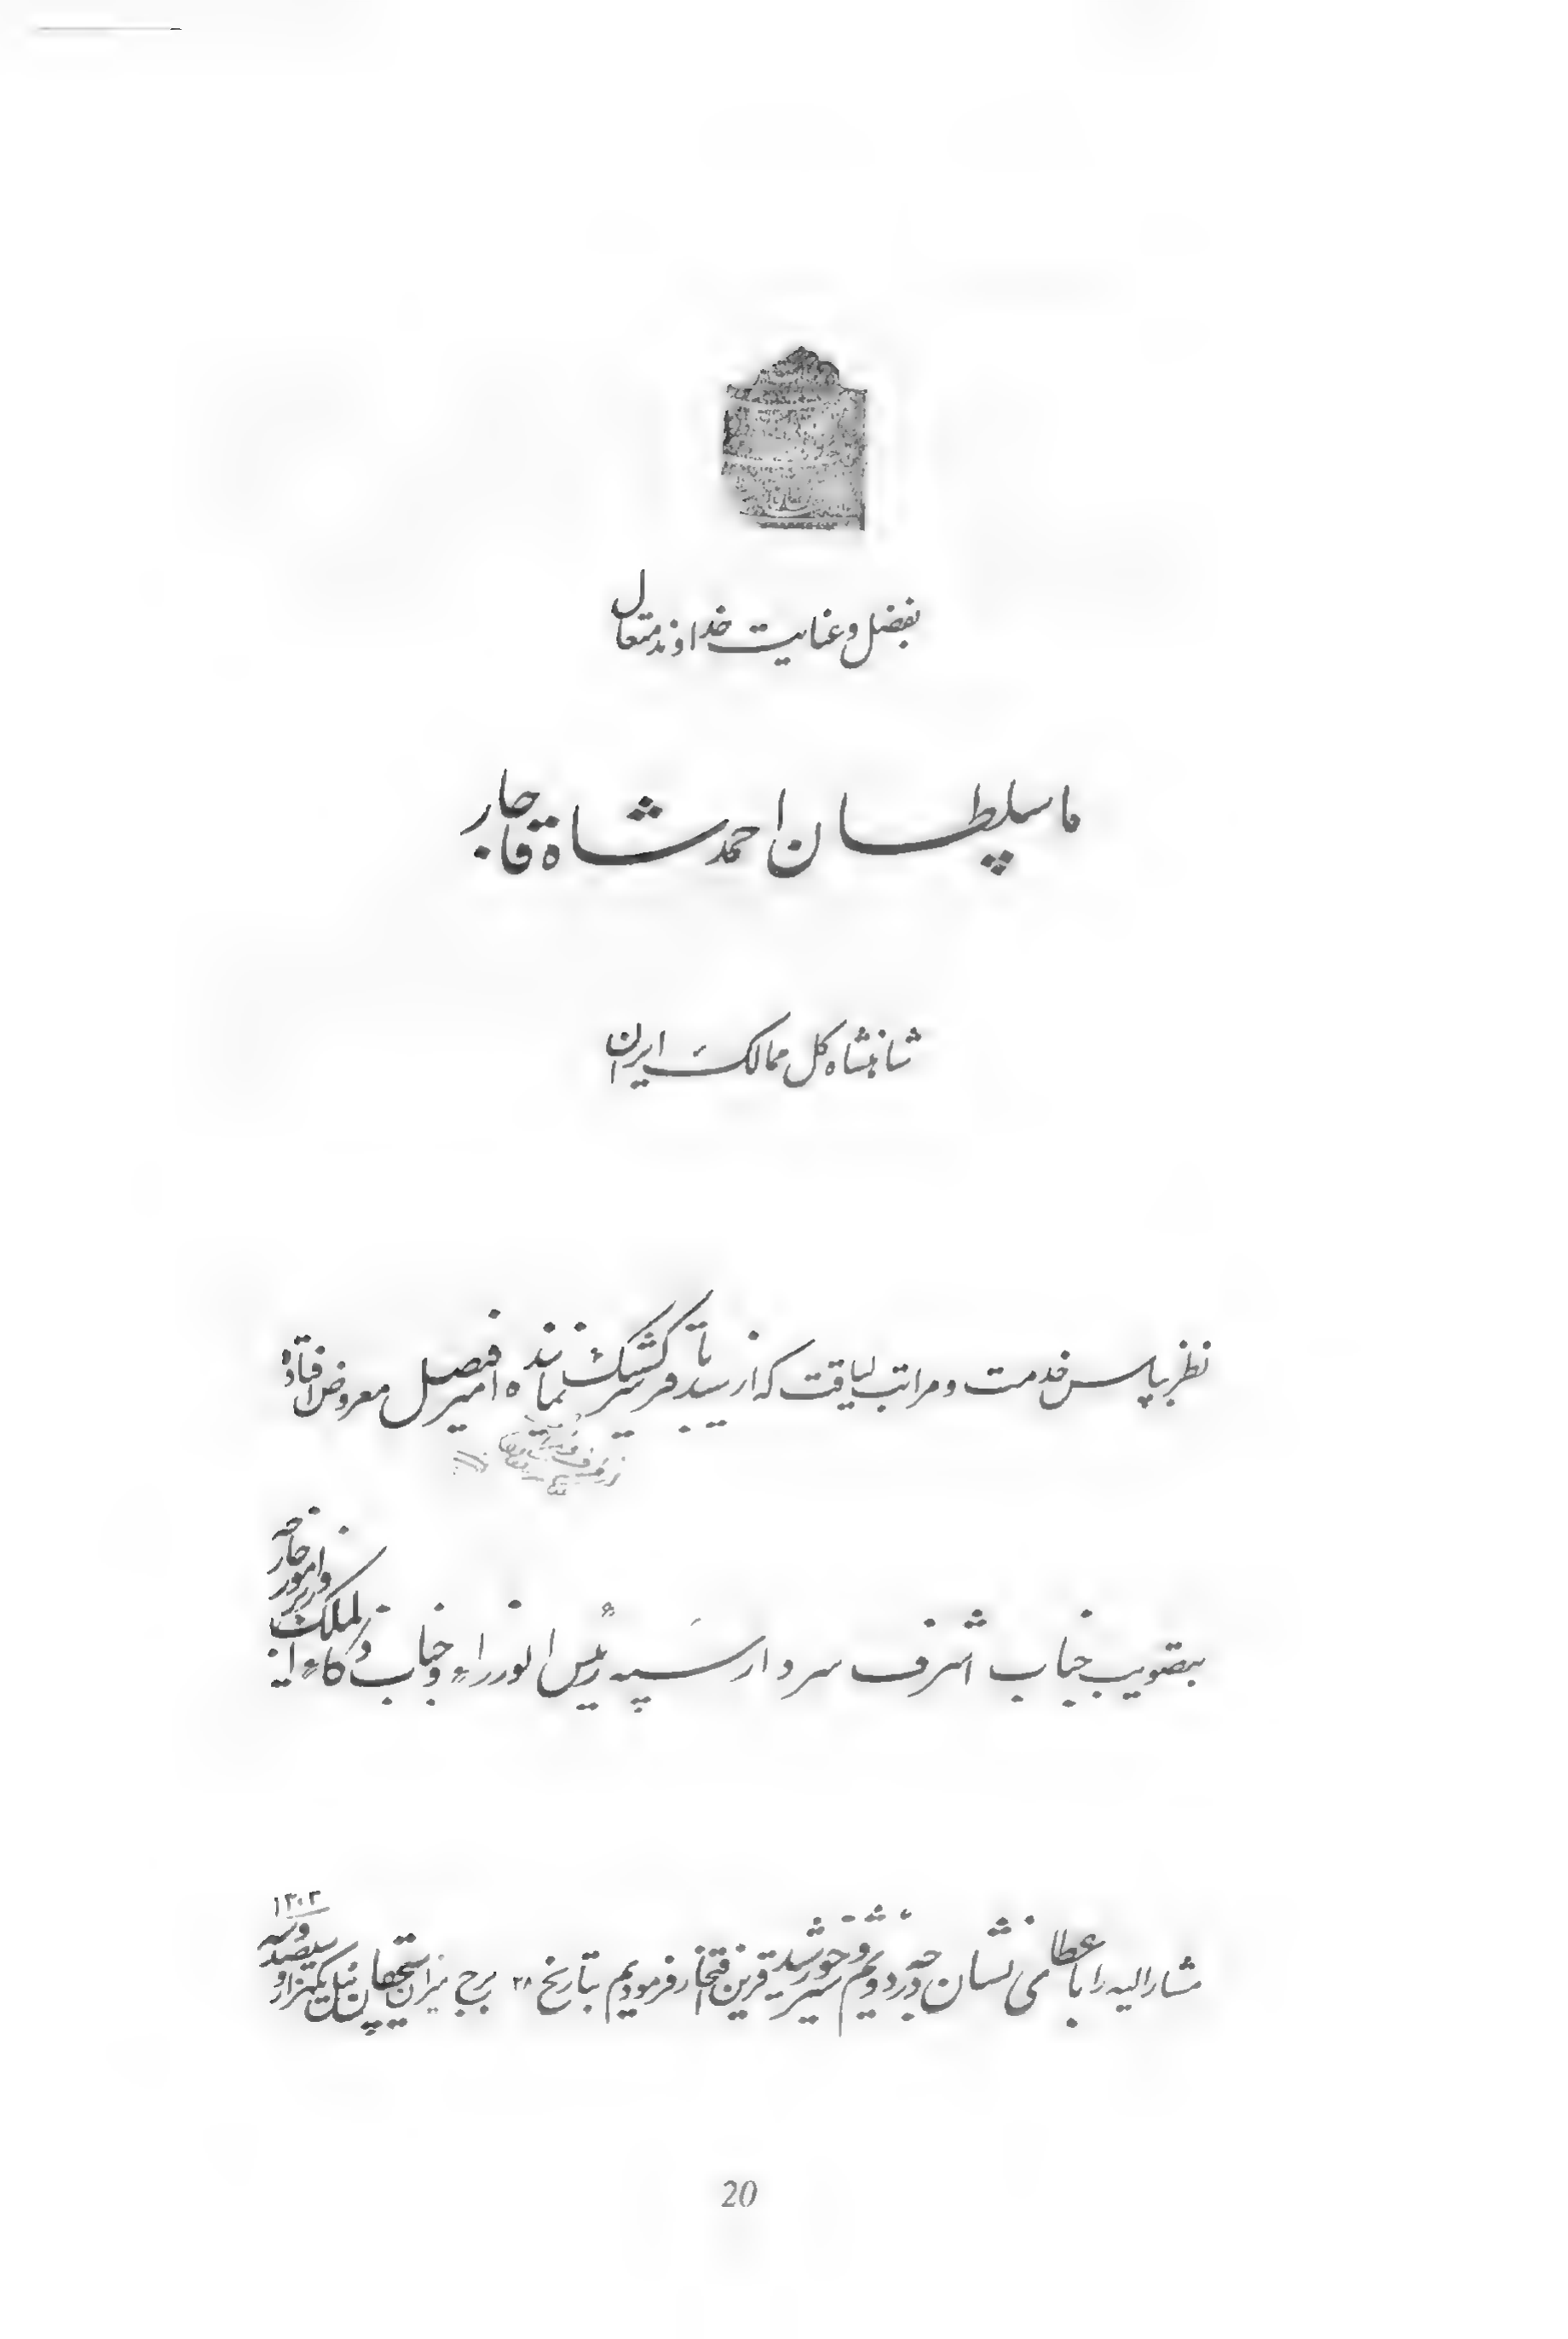 بفضل و عنایت خداوند متعال
ما سلطان احمد شاه قاجار
شاهنشاه کل ممالک ایران
نظر بپاس خدمت و مراتب لیاقت که از سید باقر کشکک نماینده امیر فیصل معروض افتاده
بتصویب جناب اشرف سردار سپه رئیس الوزراء و جناب ذکاء الملک وزیر امور خارجه
مشارالیه را با عطای نشان درجه دویم شیر و خورشید قرین افتخار فرمودیم بتاریخ ۲۸ برج میزان سیچقان ئیل یکهزار و سیصد و سه
۱۳۰۳
20